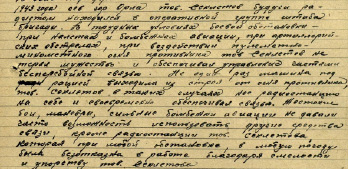 1943 года под Орла тов. Секистов будучи ра-
дистом находился в оперативной группе штаба
бригады. В трудных условиях боевой обстановки
при налетах и бомбежках авиации, при артиллерий-
ских обстрелах, при воздействии пулеметно-
минометного огня противника тов. Секистов не
терял мужества и обеспечивал управление частями
бесперебойной связью. Не один раз станции под
рацией выходила из строя от огня противника
тов. Секистов в таких случаях нес радиостанцию
на себе и своевременно обеспечивал связь. Жестокие
бои, маневры, сильные бомбежки авиации не давали
часто возможность использовать другие средства
связи, кроме радиостанции тов. Секистова
которая при любой обстановке в любую погоду
была безотказна в работе благодаря смелости
и упорству тов. Секистова